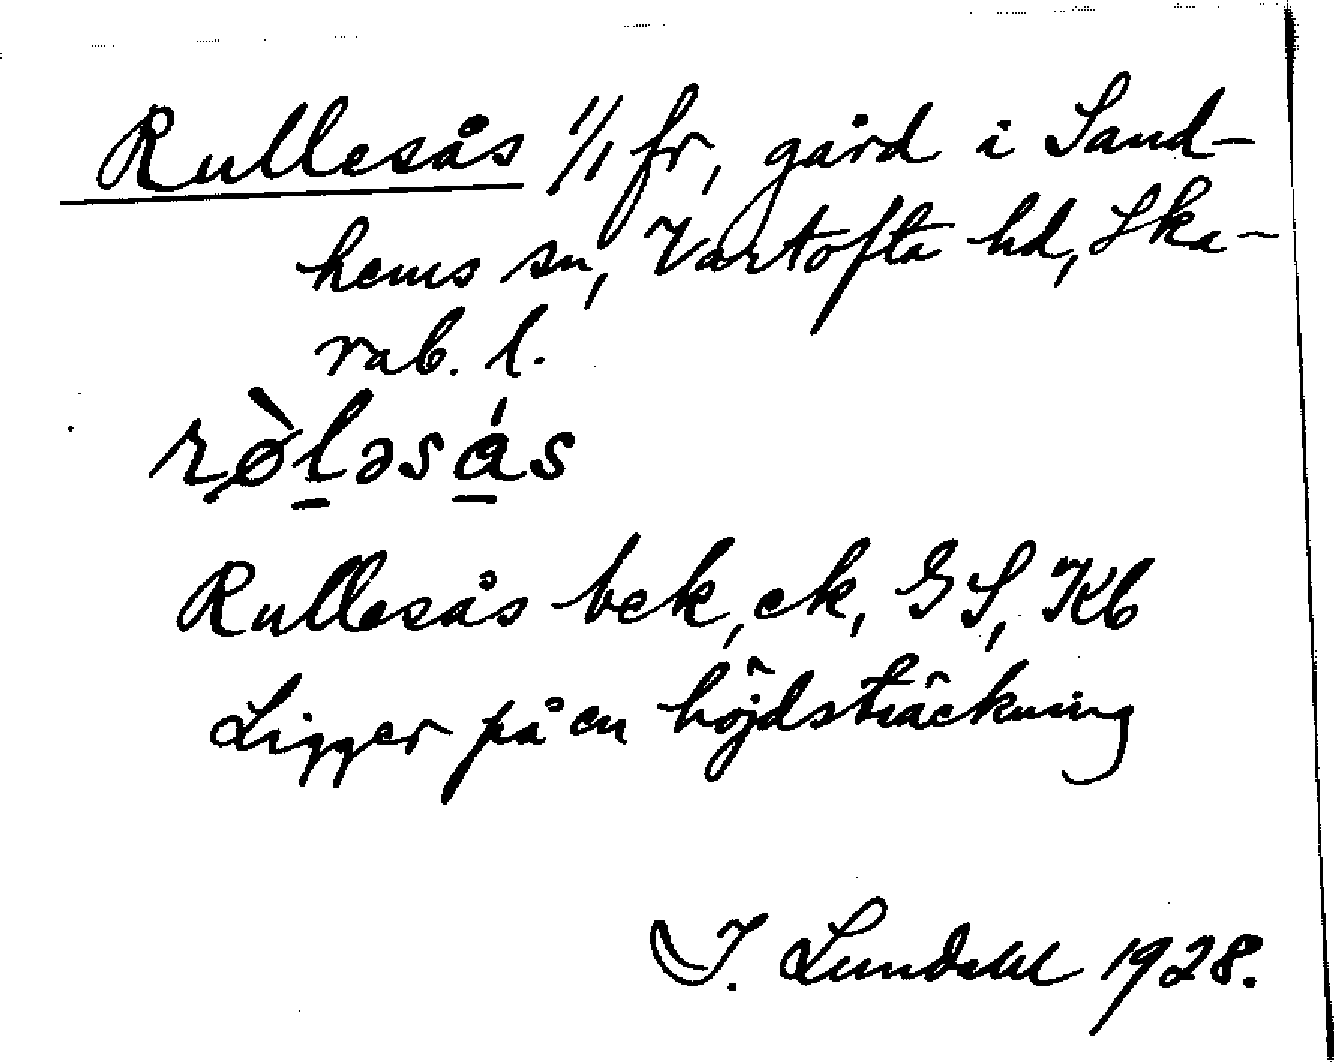 Rullesås 1/1 fr, gård i Sand-
hems sn, Vartofta hd, Ska-
rab. l.
rø̀ləsás
Rullesås bek, ek, GS, Kb
Ligger på en höjdsträckning
I. Lundahl 1928.